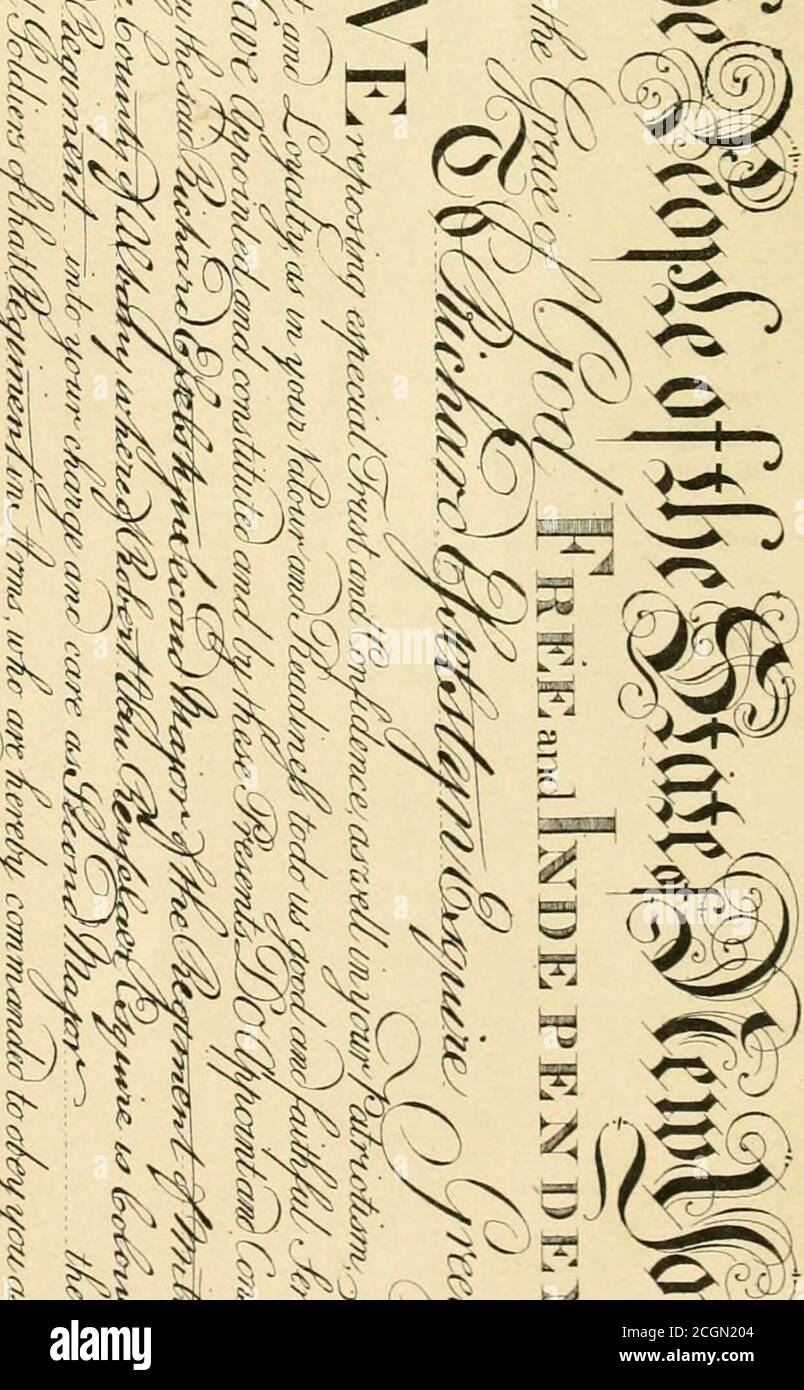 he People of the State of New Yo
the Grace of God, FREE and INDEPENDEN
To Richard Esselstyn Esquire Gree
WE reposing especial Trust and Confidence, as well in your Patriotism,
t and Loyalty, as in your Valour and Readiness to do us good and faithful Ser
ave Appointed and constituted and by these Presents, DO Appoint and Con
u the said Richard Esselstyn Second Major of the Regiment of Mili
e County of Albany whereof Robert Van Renselaer Esquire is Colon
Regiment into your charge and care as Second Major the
Soldiers of that Regiment in Arms, who are hereby commanded to obey you a
alamy
Image ID: 2CGN204
www.alamy.com